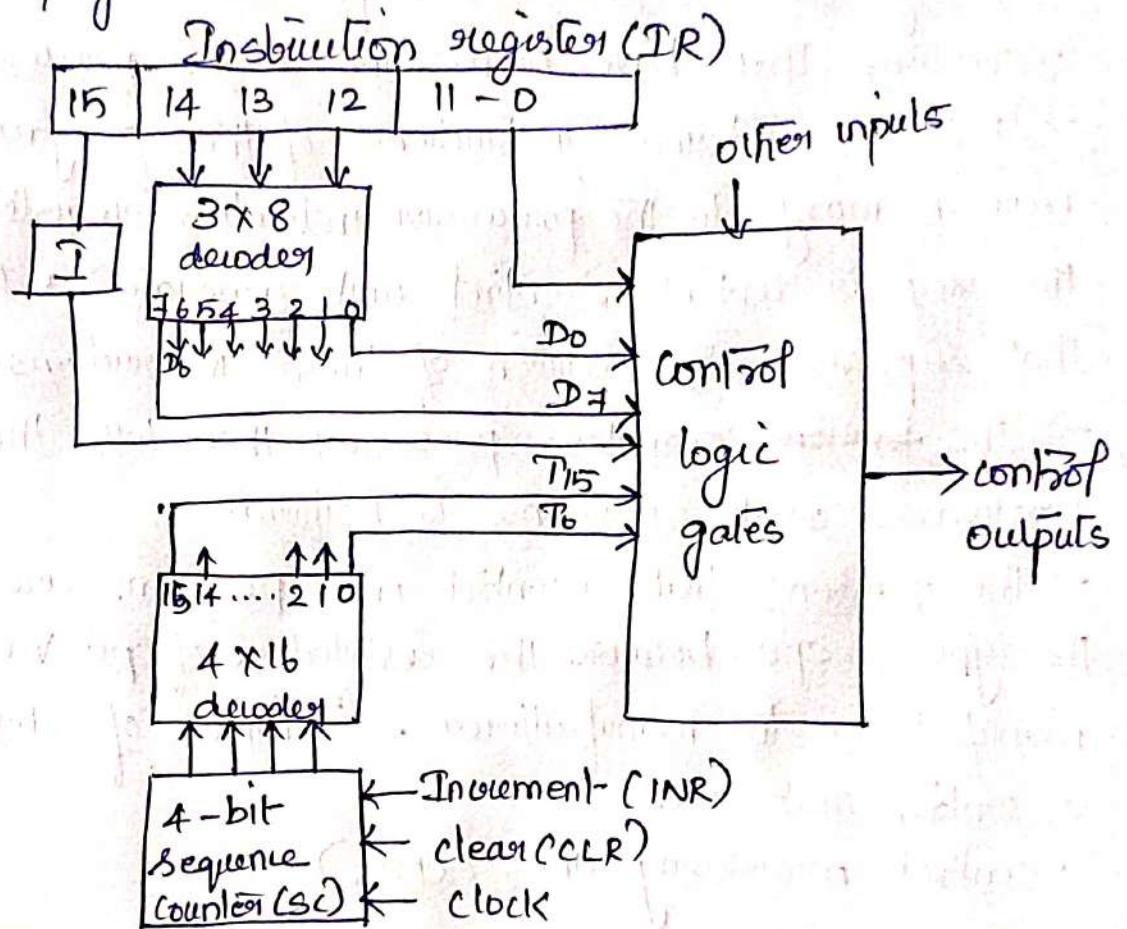 Instruction register (IR)
15 14 13 12 11 - 0
other inputs
3 x 8
decoder
I
7 6 5 4 3 2 1 0
D0
D6
control
D7
logic
T15
gates
T0
control
outputs
15 14 .... 2 1 0
4 x 16
decoder
4-bit
sequence
counter (SC)
Increment (INR)
clear (CLR)
clock